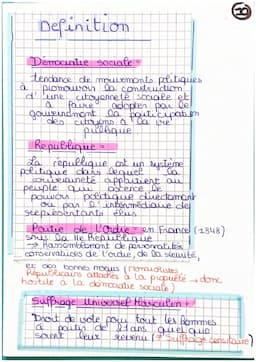 Definition
Démocratie sociale =
tendance de mouvements politiques
à promouvoir la construction
d'une citoyenneté sociale et
à faire adopter par le
gouvernement la participation
des citoyens à la vie
publique
République =
La république est un système
politique dans lequel la
souveraineté appartient au
peuple qui exerce le
pouvoir politique directement
ou par l'intermédiaire de
représentants élus
Partie de l'Ordre = en France (1848)
sous la IIe République
→ Rassemblement de personnalités
conservatrices de l'ordre, de la sécurité,
et des bonnes moeurs (monarchistes
Républicains attachés à la propriété → donc
hostile à la démocratie sociale)
Suffrage Universel Masculin =
Droit de vote pour tout les hommes
à partir de 21 ans quelque
soient leur revenu (≠ suffrage censitaire)